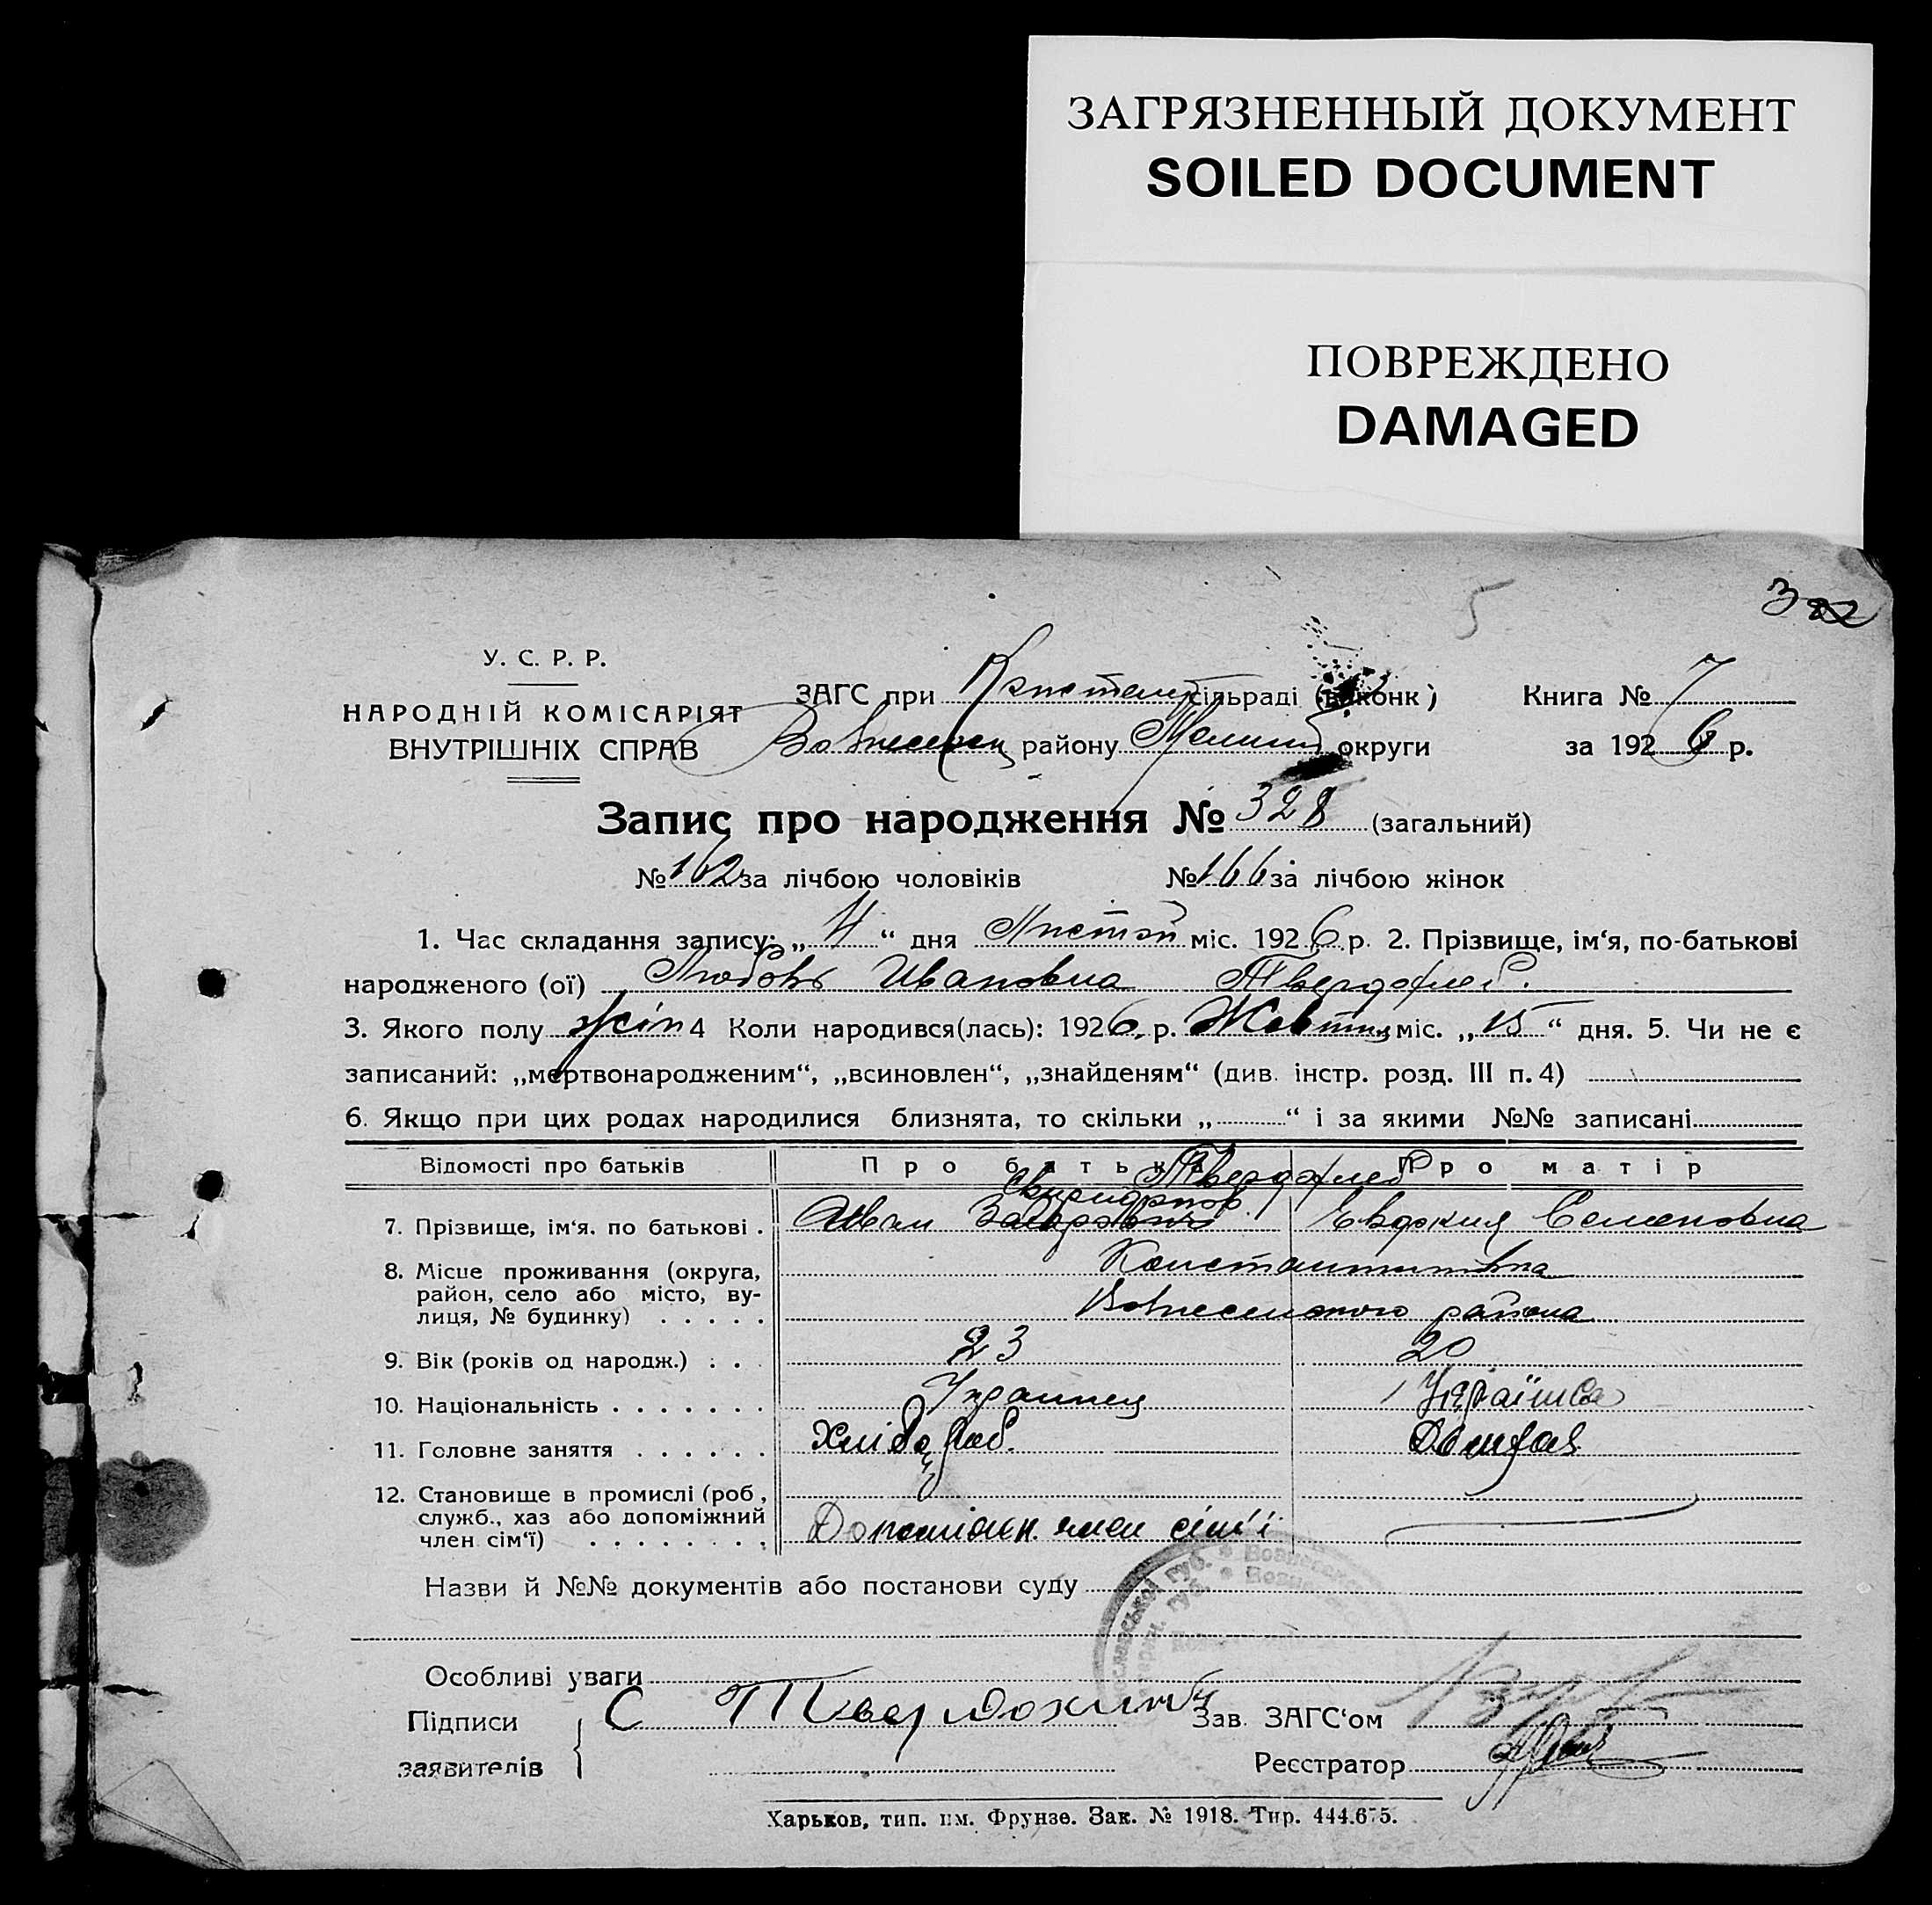 ЗАГРЯЗНЕННЫЙ ДОКУМЕНТ
SOILED DOCUMENT
ПОВРЕЖДЕНО
DAMAGED
5
3
У. С. Р. Р.
НАРОДНІЙ КОМІСАРІЯТ
ВНУТРІШНІХ СПРАВ
ЗАГС при сільраді (виконк) Книга № 7
району округи за 1926 р.
Запис про народження № 328 (загальний)
№ 162 за лічбою чоловіків № 166 за лічбою жінок
1. Час складання запису: „ “ дня Листоп міс. 1926 р. 2. Прізвище, ім‘я, по-батькові
народженого (ої) Любовь Ивановна Твердохлеб.
3. Якого полу жін 4 Коли народився(лась): 1926 р. Жовтня міс. „15“ дня. 5. Чи не є
записаний: „мертвонародженим“, „всиновлен“, „знайденям“ (див. інстр. розд. III п. 4)
6. Якщо при цих родах народилися близнята, то скільки „ “ і за якими №№ записані
Відомості про батьків Про батька Про матір
Твердохлеб
7. Прізвище, ім‘я, по батькові . Иван Евдокия Семеновна
8. Місце проживання (округа, район, село або місто, ву-
лиця, № будинку) . . . . . Вознесенского района
9. Вік (років од народж.) . . . 23 20
10. Національність . . . . . . . Украинец Українка
11. Головне заняття . . . . . . Хлібороб.
12. Становище в промислі (роб,
служб., хаз або допоміжний
член сім‘ї) . . . . . . . . Допоміжн. член сім'ї
Назви й №№ документів або постанови суду
Особливі уваги
Підписи Зав. ЗАГС‘ом
заявителів Реєстратор
Харьков, тип. им. Фрунзе. Зак. № 1918. Тир. 444.675.